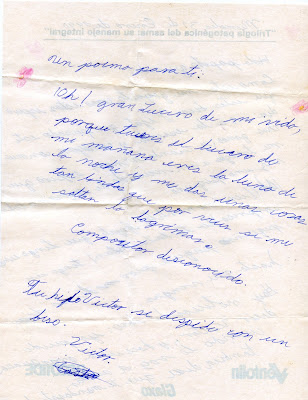 "Trilogía patogénica del asma: su manejo integral"
un poema para ti.
¡Oh! gran lucero de mi vida,
porque tu eres el lucero de
mi mañana eres la luna de
la noche y me das unas cosas
tan lindas que por veces si me
saltan la lagrimas.
Compositor desconocido.
Tu hijo Victor se despide con un
beso.
Victor.
Ventolin
Glaxo